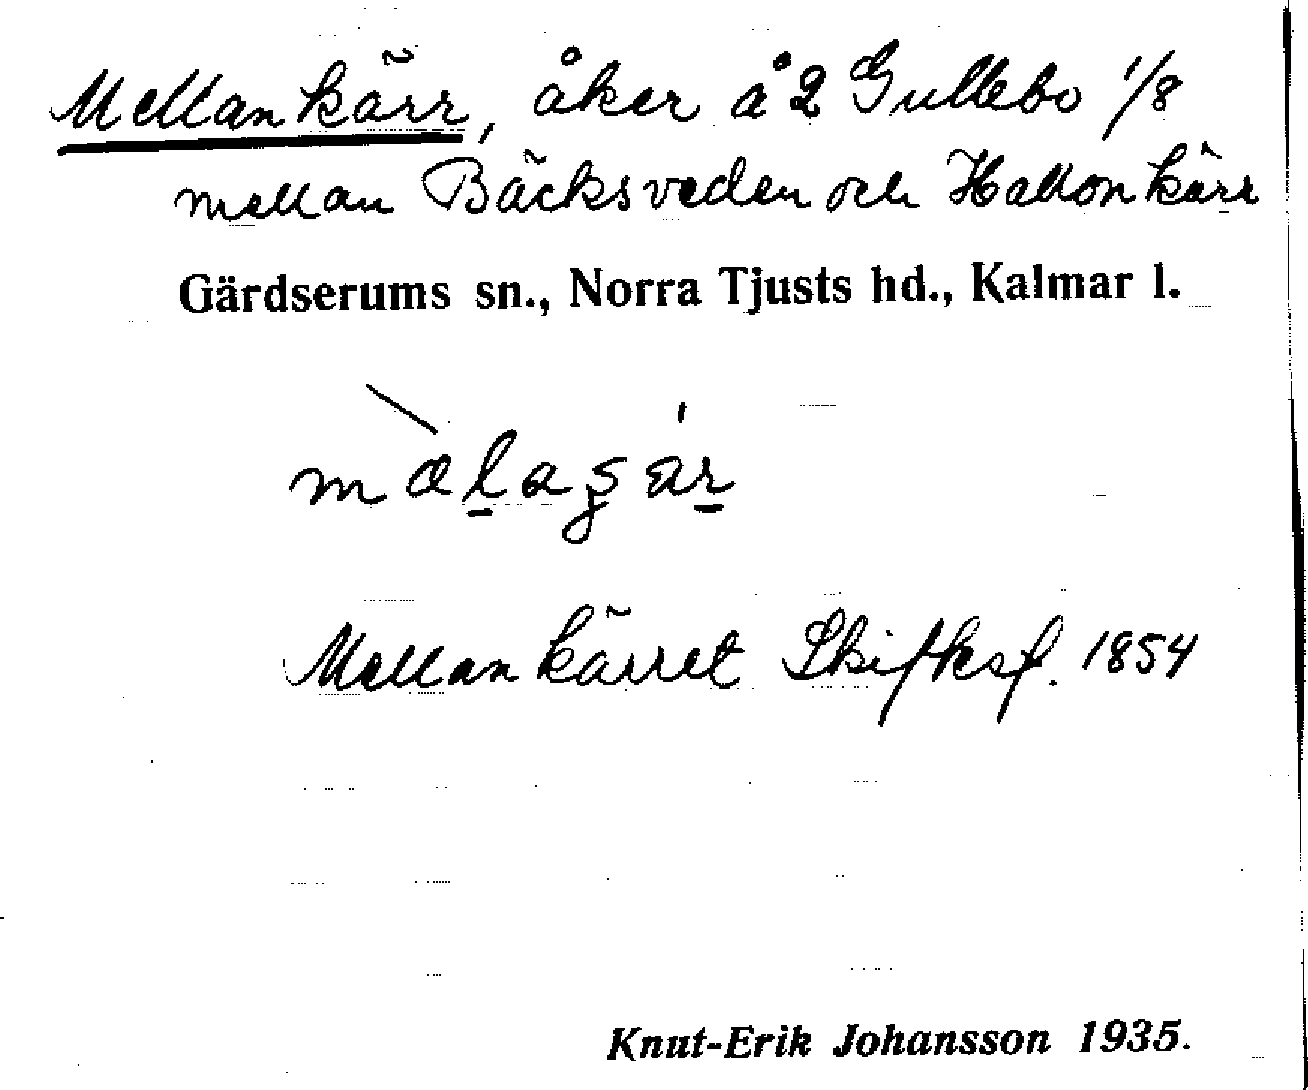 Mellankärr, åker å 2 Gullebo 1/8
mellan Bäcksveden och Hallonkärr
Gärdserums sn., Norra Tjusts hd., Kalmar l.
Mellankärret Skifteskf. 1854
Knut-Erik Johansson 1935.